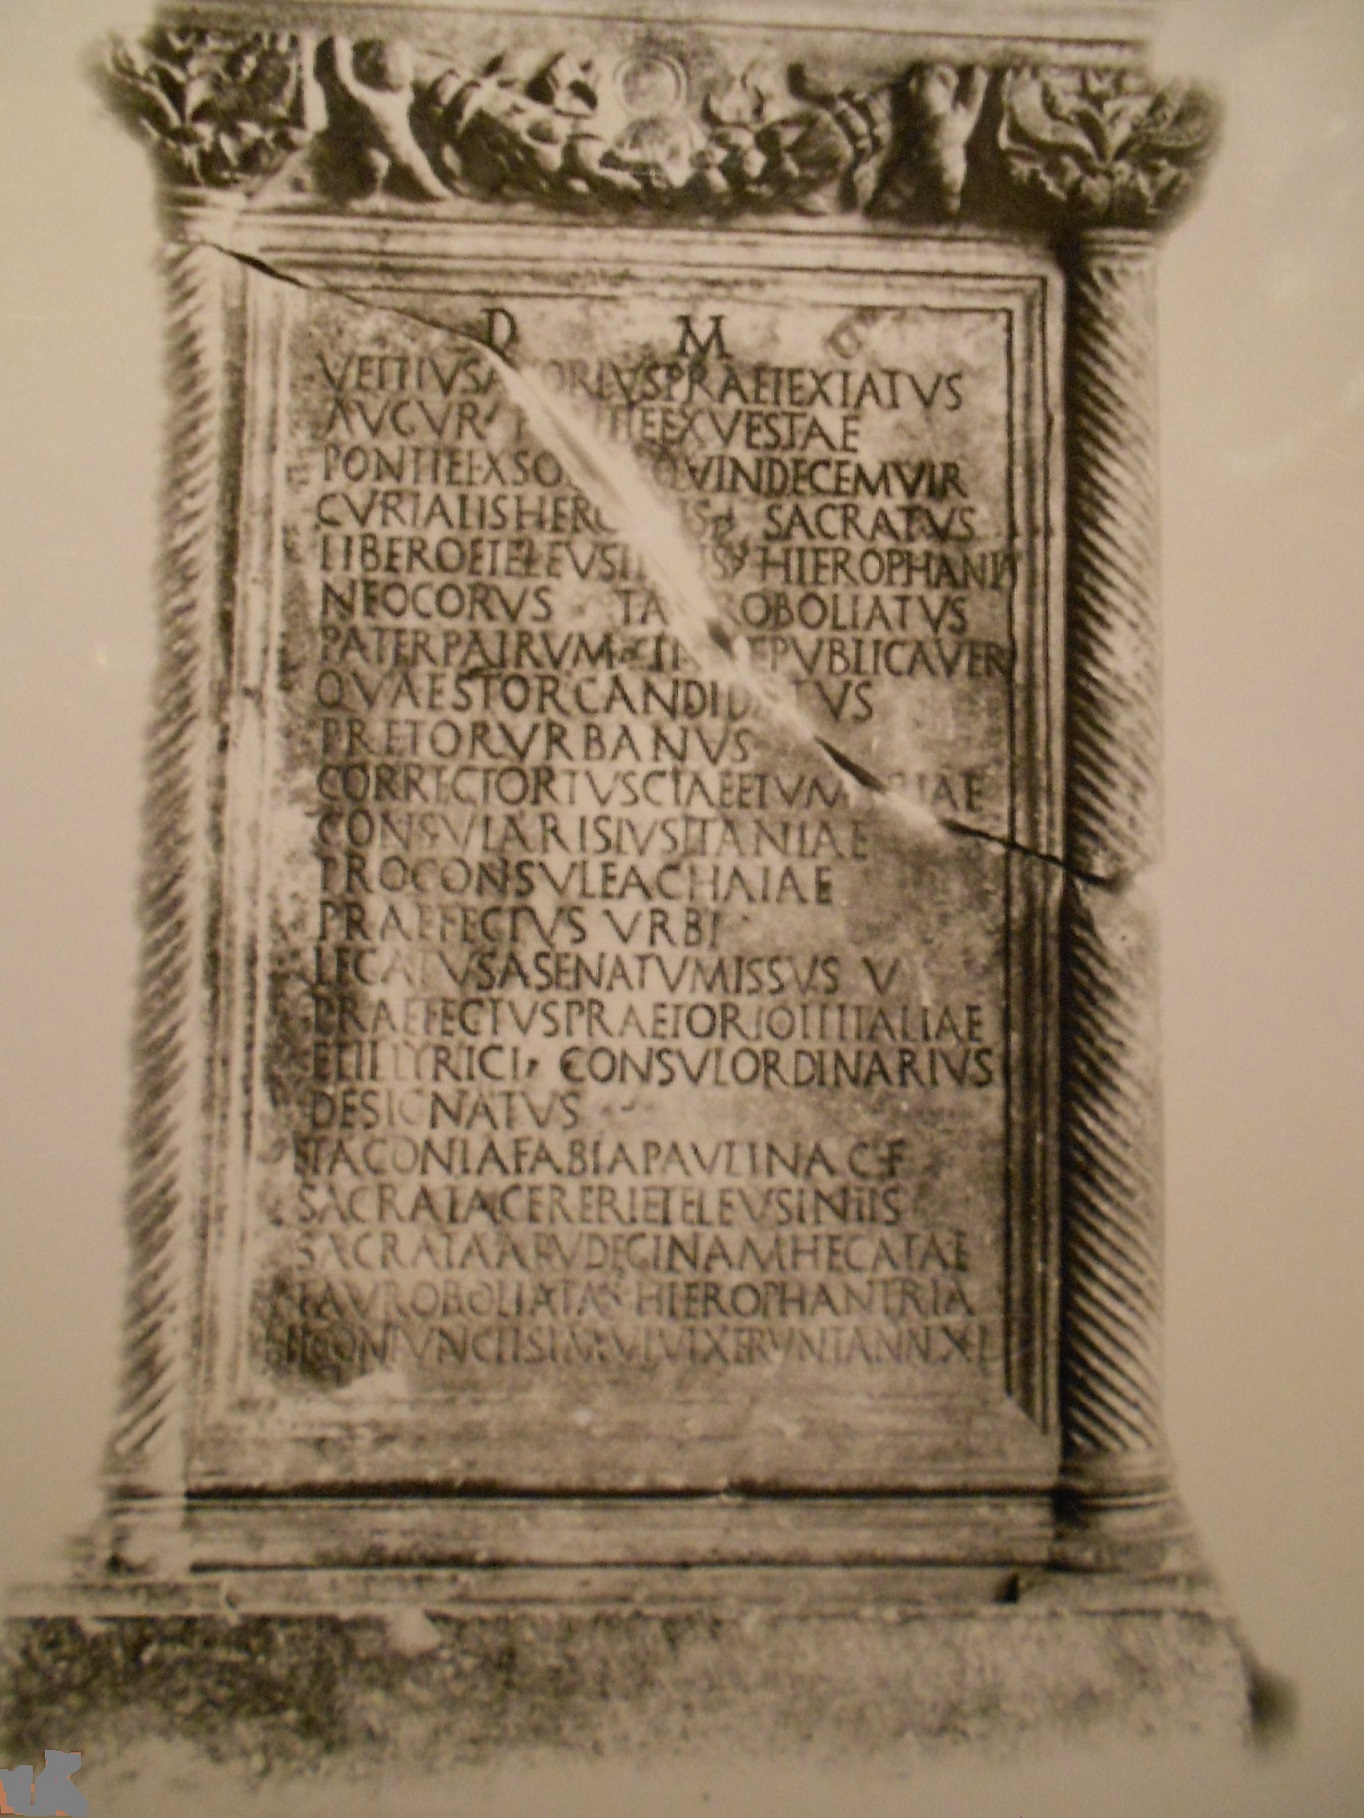 D M
VETTIVS PRAETEXTATVS
AVGVR VESTAE
PONTIFEX QVINDECEMVIR
CVRIALIS SACRATVS
LIBERO ET HIEROPHANT
NEOCORVS
PATER PATRVM REPVBLICA VER
QVAESTOR CANDIDATVS
PRETOR VRBANVS
CORRECTOR TVSCIAE ET
CONSVLARIS LVSITANIAE
PROCONSVLE ACHAIAE
PRAEFECTVS VRBI
LEGATVS A SENATV MISSVS V
PRAEFECTVS PRAETORIO II ITALIAE
ET ILLYRICI CONSVL ORDINARIVS
DESIGNATVS
ET ACONIA FABIA PAVLINA C F
SACRATA CERERI ET ELEVSINIIS
SACRATA APVD EGINAM HECATAE
TAVROBOLIATA HIEROPHANTRIA
HI CONIVNCTI SIMVL VIXERVNT ANN XL